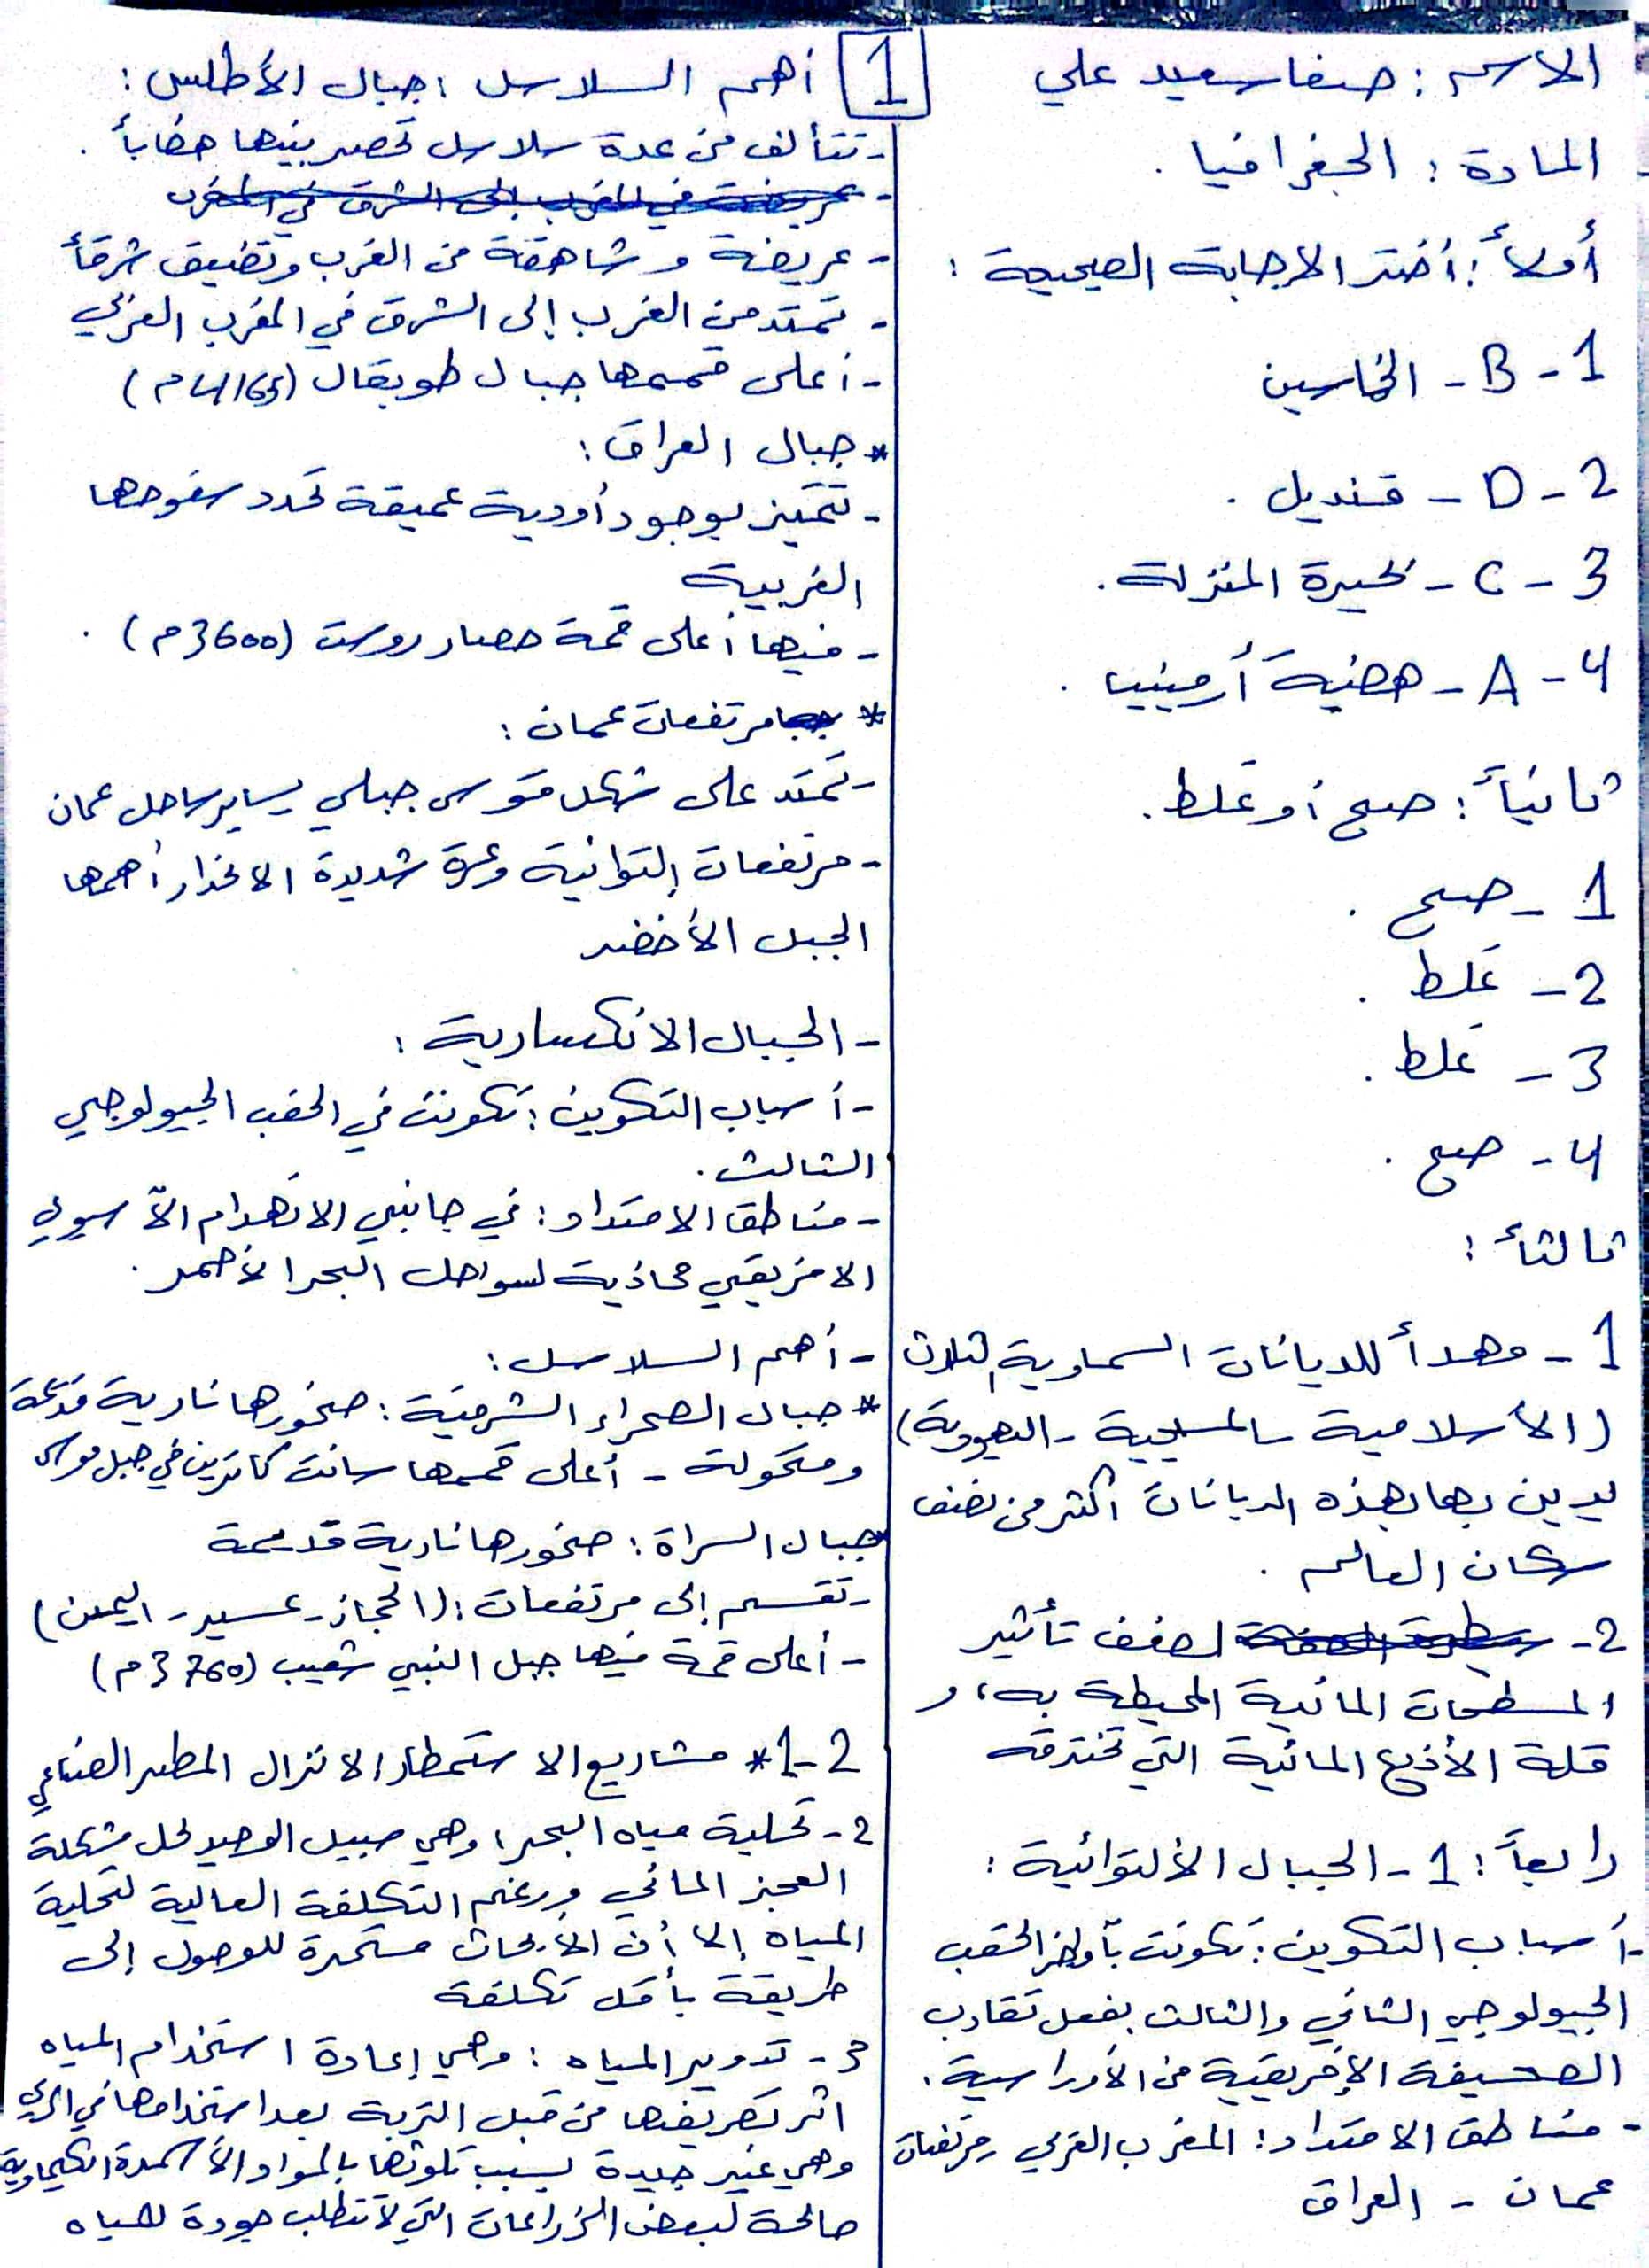 الاسم : صفا سعيد علي
المادة : الجغرافيا .
أولاً : أختر الإجابة الصحيحة :
1 - B - الخماسين
2 - D - قنديل .
3 - C - بحيرة المنزلة .
4 - A - هضبة أرمينيا .
ثانياً : صح أو غلط .
1 - صح .
2 - غلط .
3 - غلط .
4 - صح .
ثالثاً :
1 - مهداً للديانات السماوية الثلاث
(الأسلامية - المسيحية - اليهودية)
يدين بها بهذه الديانات اكثر من نصف
سكان العالم .
2 - لضعف تأثير
المسطحات المائية المحيطة به، و
قلة الأذرع المائية التي تخترقه
رابعاً : 1 - الجبال الألتوائية :
- أسباب التكوين : تكونت بأواخر الحقب
الجيولوجي الثاني والثالث بفعل تقارب
الصحيفة الإفريقية من الأوراسية .
- مناطق الامتداد : المغرب العربي ، مرتفعات
عمان - العراق
1
أهم السلاسل : جبال الأطلس :
- تتألف من عدة سلاسل تحصر بينها هضاباً .
- عريضة في المغرب إلى الشرق في المغرب
- عريضة و شاهقة من الغرب وتضيق شرقاً
- تمتد من الغرب إلى الشرق في المغرب العربي
- أعلى قممها جبال طوبقال (4165م)
* جبال العراق :
- تتميز بوجود أودية عميقة تحدد سفوحها
الغربية
- فيها أعلى قمة حصار روست (3600م) .
* مرتفعات عمان :
- تمتد على شكل قوس جبلي يساير ساحل عمان
- مرتفعات إلتوائية وعرة شديدة الانحدار أهمها
الجبل الأخضر
- الجبال الانكسارية :
- أسباب التكوين : تكونت في الحقب الجيولوجي
الثالث .
- مناطق الامتداد : في جانبي الانهدام الآسيوي
الافريقي محاذية لسواحل البحر الأحمر .
- أهم السلاسل :
* جبال الصحراء الشرقية : صخورها نارية قديمة
ومتحولة - أعلى قممها سانت كاترين في جبل موسى
* جبال السراة : صخورها نارية قديمة
- تقسم إلى مرتفعات : (الحجاز - عسير - اليمن)
- أعلى قمة فيها جبل النبي شعيب (3760م)
2 - 1 * مشاريع الاستمطار الانزال المطر الصناعي
2 - تحلية مياه البحر : وهي سبيل الوحيد لحل مشكلة
العجز المائي ورغم التكلفة العالية لتحلية
المياه إلا أن الأبحاث مستمرة للوصول إلى
طريقة بأقل تكلفة
3 - تدوير المياه : وهي إعادة استخدام المياه
اثر تصريفها من قبل التربة بعد استخدامها في الري
وهي غير جيدة بسبب تلوثها بالمواد الأسمدة الكيماوية
صالحة لبعض الزراعات التي لا تتطلب جودة للمياه